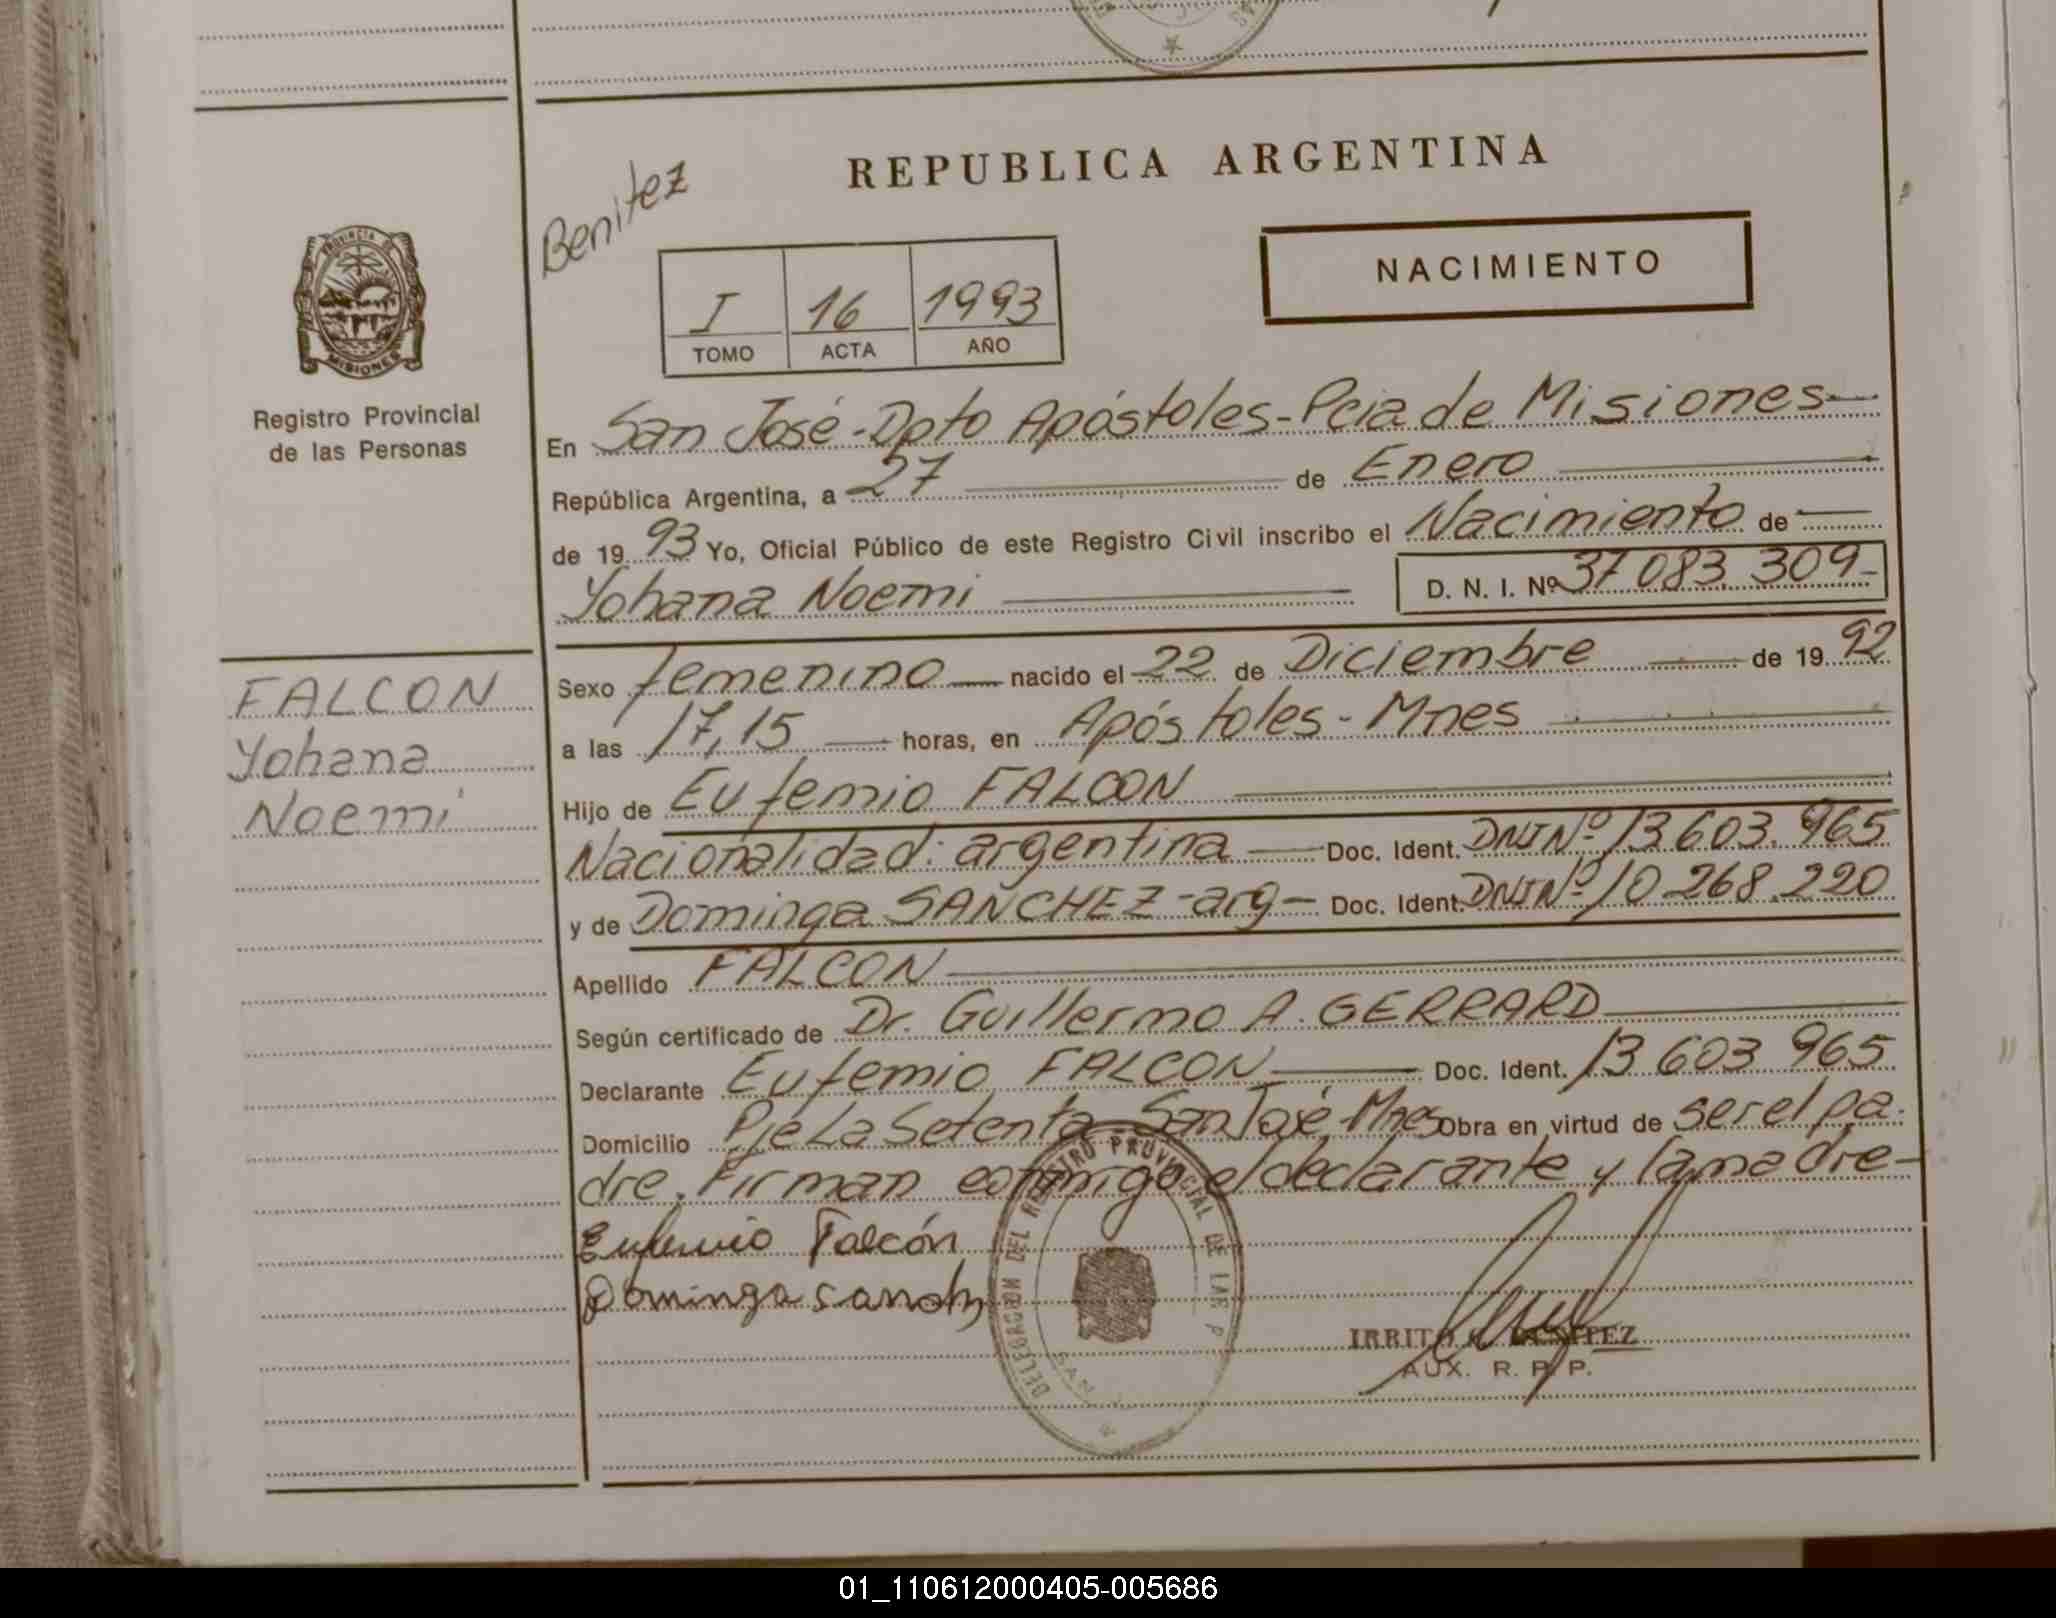 REPUBLICA ARGENTINA
Benitez
NACIMIENTO
I 16 1993
TOMO ACTA AÑO
PROVINCIA DE
MISIONES
Registro Provincial
de las Personas
En San José-Dpto Apóstoles-Pcia de Misiones
República Argentina, a 27 de Enero
de 19 93 Yo, Oficial Público de este Registro Civil inscribo el Nacimiento de
Yohana Noemi D. N. I. Nº 37 083. 309-
FALCON
Yohana
Noemí
Sexo femenino nacido el 22 de Diciembre de 19 92
a las 17,15 horas, en Apóstoles - Mnes
Hijo de Eufemio FALCON
Nacionalidad: argentina Doc. Ident. DNI Nº 13 603. 965
y de Dominga SANCHEZ -arg- Doc. Ident. DNI Nº 10 268.220
Apellido FALCON
Según certificado de Dr. Guillermo A. GERRARD
Declarante Eufemio FALCON Doc. Ident. 13 603 965
Domicilio Pje La Setenta - San José - Mnes Obra en virtud de ser el pa-
dre. Firman conmigo el declarante y la madre-
Eufemio Falcón
Dominga Sanchz
DELEGACION DEL REGISTRO PROVINCIAL DE LAS P
SAN
IRRITO BENITEZ
AUX. R. P. P.
01_110612000405-005686